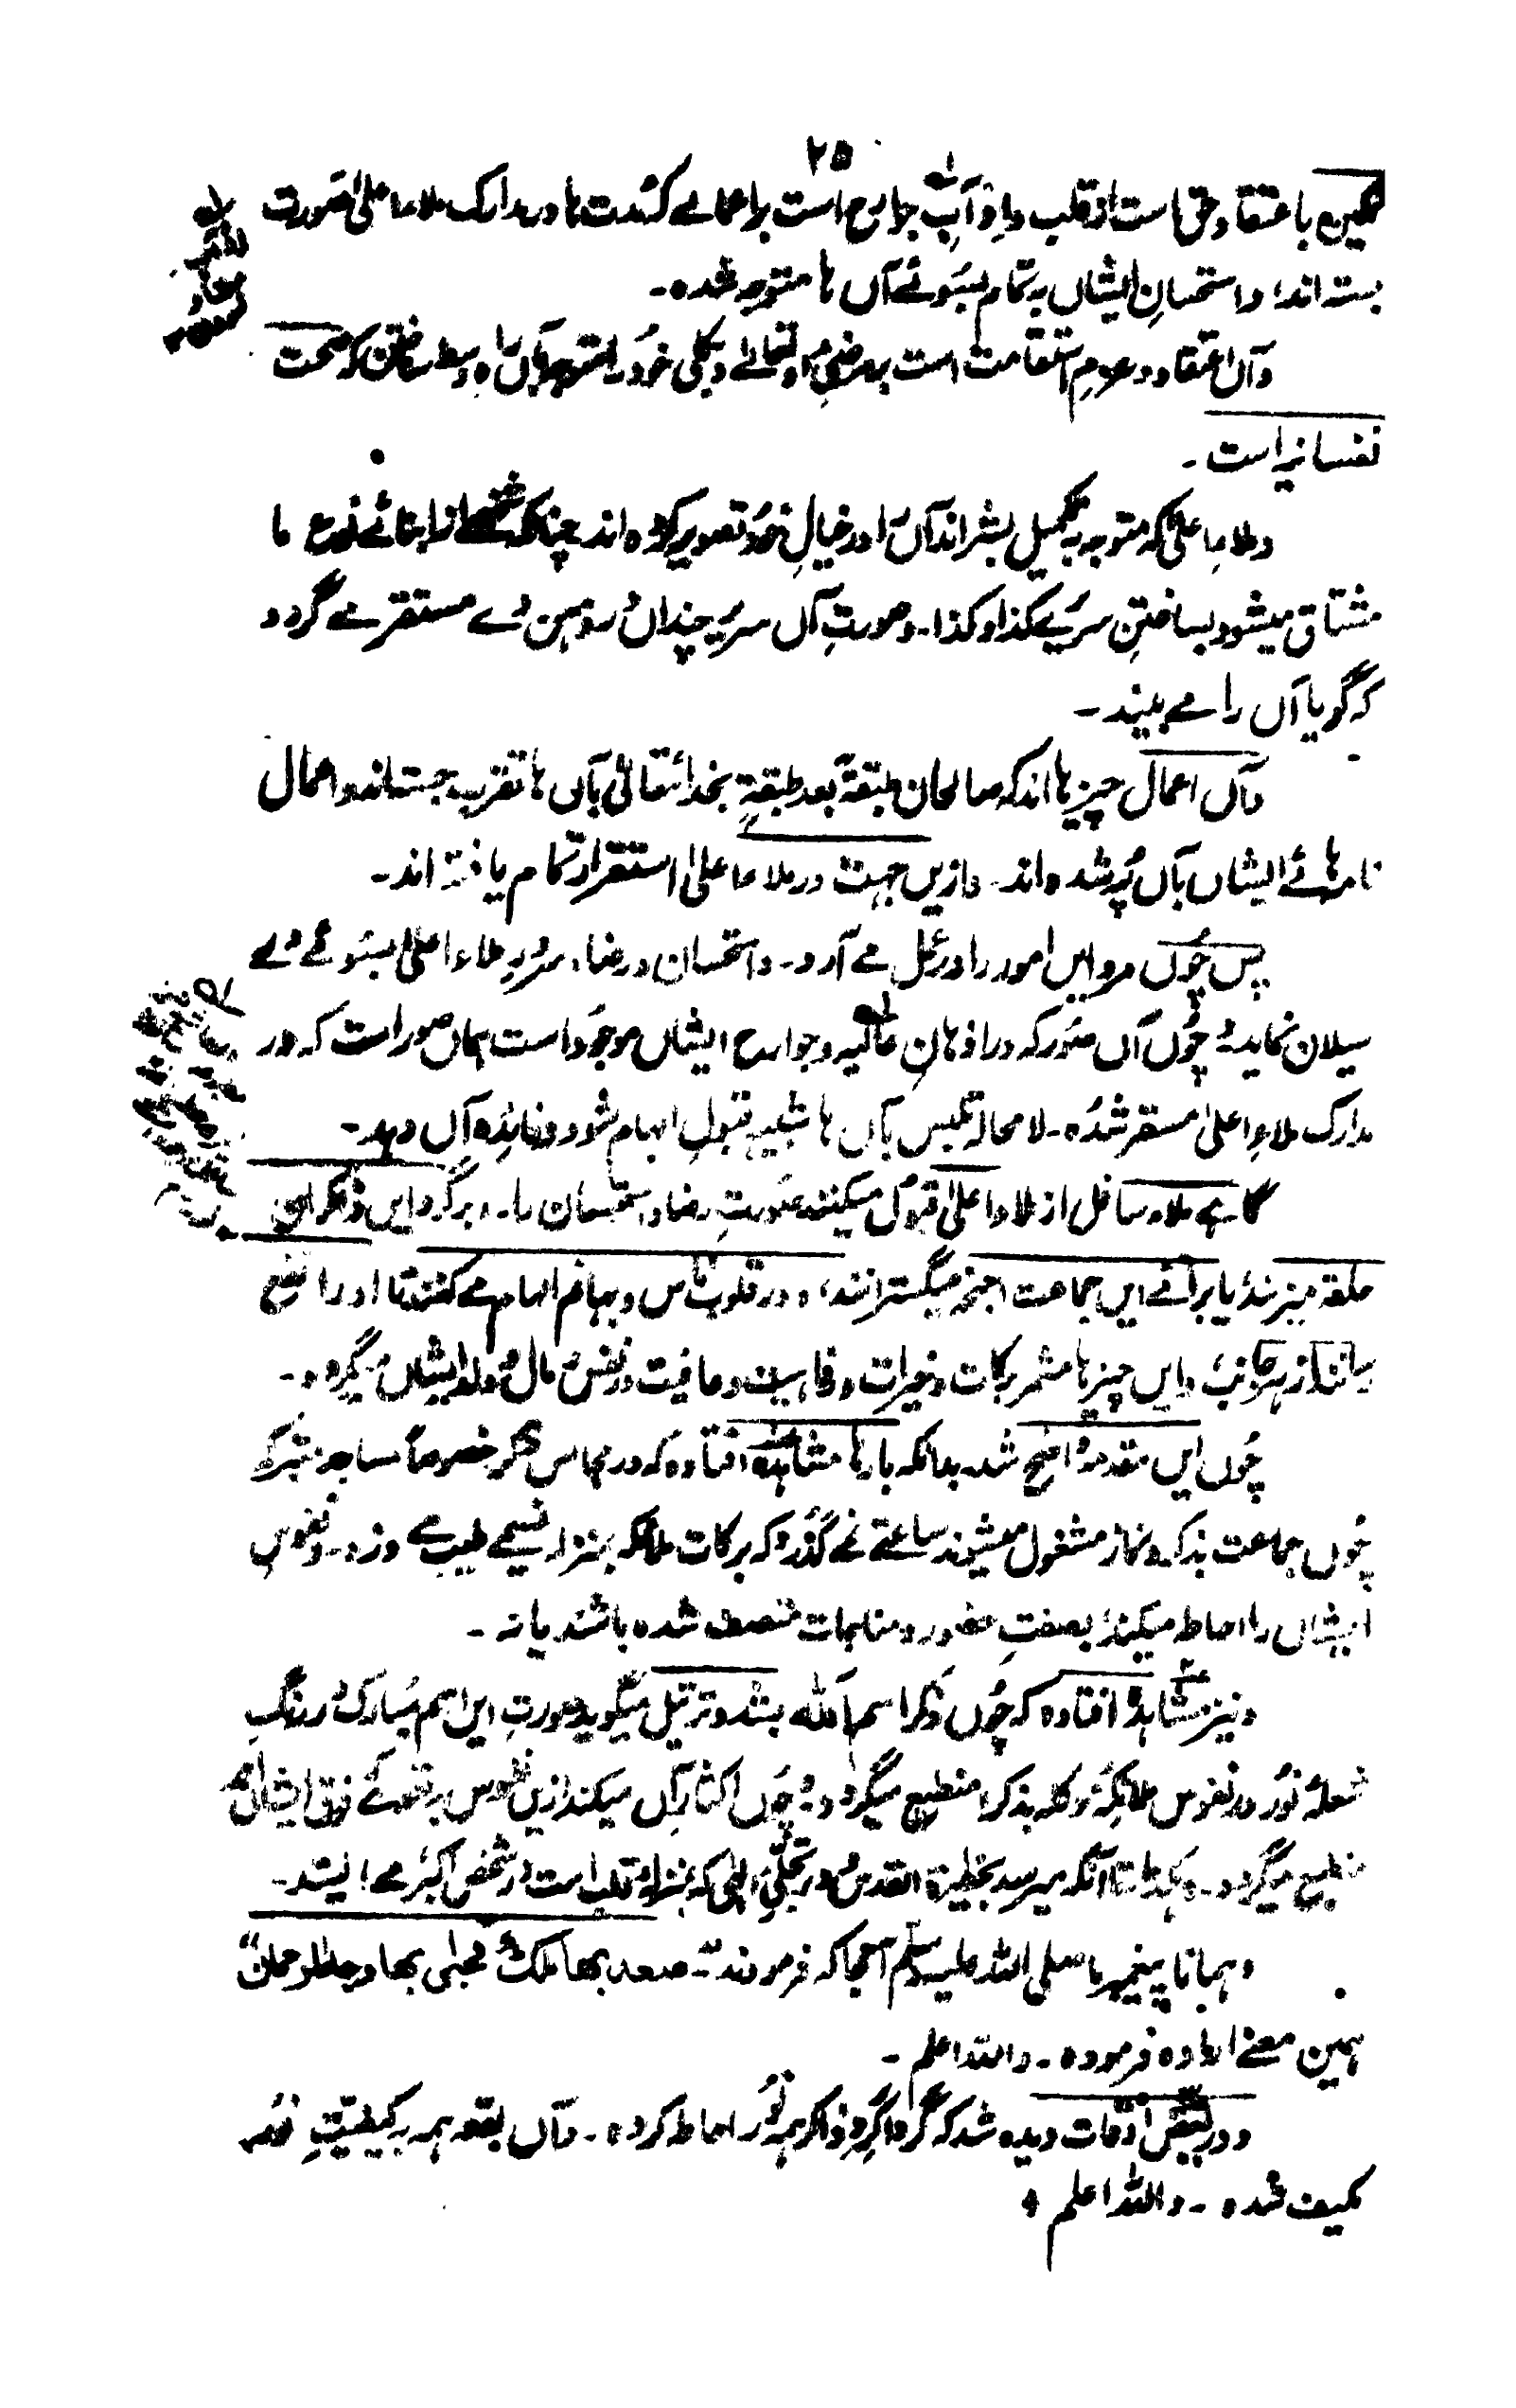 ۲۵
ہمین باعتقاد حق است از قلب و ادوآبِ جوارح است براعمالے کہ مدتہا در مدارک ملاء اعلیٰ صورت
بستہ اند، و استحسانِ ایشاں بہ تمام بسوئے آں ہا متوجہ شدہ۔
و آں اعتقاد و عزمِ استقامت است بمرضیِ او تعالےٰ و بکلی خود را متوجہ آں راہ وسط ساختن کہ صحت
نفسانیہ است۔
و ملاء اعلیٰ کہ متوجہ بہ تکمیل بشر اند آں را در خیالِ خود تصویر کردہ اند چنانکہ شخصے از ابنائے نوع ما
مشتاق میشود بساختنِ سریرے کذا و کذا۔ و صورتِ آں سریر چنداں در ذہن وے مستقر مے گردد
کہ گویا آں را مے بیند۔
و آں اعمال چیزہا اند کہ صالحان طبقۃً بعد طبقۃٍ بخدائتعالیٰ بآں ہا تقرب جستہ اند و اعمال
نامہائے ایشاں بآں پُر شدہ اند۔ و ازیں جہت در ملاء اعلیٰ استقرار تمام یافتہ اند۔
پس چوں مرد ایں امور را در عمل مے آرد۔ و استحسان و رضاء سرورِ ملاء اعلیٰ بسوئے وے
سیلان نماید، چوں آں صور کہ در اذہانِ عالیہ و جوارح ایشاں موجود است ہماں صور است کہ در
مدارک ملاءِ اعلیٰ مستقر شدہ۔ لامحالہ تلبس بآں ہا شبیہِ قبولِ الہام شود و فائدہ آں دہد۔
گاہے ملاء سافل از ملاء اعلیٰ قبول میکنند صورتِ رضا و استحسان را۔ و برگرد ایں ذاکراں
حلقہ میزنند، یا برائے ایں جماعت اجنحہ میگسترانند، و در قلوبِ ناس و بہائم الہام مے کنند تا او را نفع
رسانند از ہر جانب، و ایں چیزہا مثمر برکات و خیرات و رفاہیت و عافیت در نفس و مال و ولد ایشاں میگردد۔
چوں ایں مقدمہ واضح شد۔ بدانکہ بارہا مشاہدہ افتادہ کہ در مجالس ذکر خصوصاً مساجد متبرکہ
چوں جماعت بذکر و نماز مشغول میشوند ساعتے نمے گذرد کہ برکات ملائکہ بمنزلہ نسیمے طیب مے وزد۔ و نفوسِ
ایشاں را احاطہ میکند، بصفتِ حضور و مناجات متصف شدہ باشند یا نہ۔
و نیز مشاہدہ افتادہ کہ چوں ذاکر اسم اللہ بشد و ترتیل میگوید صورتِ ایں اسم مبارک در رنگِ
شعلۂ نور در نفوس ملائکہ مؤکلہ بذکر، منطبع میگردد، و چوں اکثارِ آں میکند ازیں نفوس بہ نفوسے فوق ایشاں
منطبع میگردد۔ و ہکذا تا آنکہ میرسد بحظیرۃ القدس و در تجلیِ الٰہی کہ بمنزلہ قلب است در شخص اکبر مے ایستد۔
و ہمانا پیغمبر ما صلی اللہ علیہ وسلم آنجا کہ فرمودند ”صعد بھا ملکٌ فحیّی بھا وجہ الرحمٰن“
ہمین معنے ارادہ فرمودہ۔ واللہ اعلم۔
و در بعض اوقات دیدہ شد کہ گرداگردِ ذاکر ہمہ نور احاطہ کردہ۔ و آں بقعہ ہمہ بکیفیتِ نور
مکیف شدہ۔ واللہ اعلم ؞